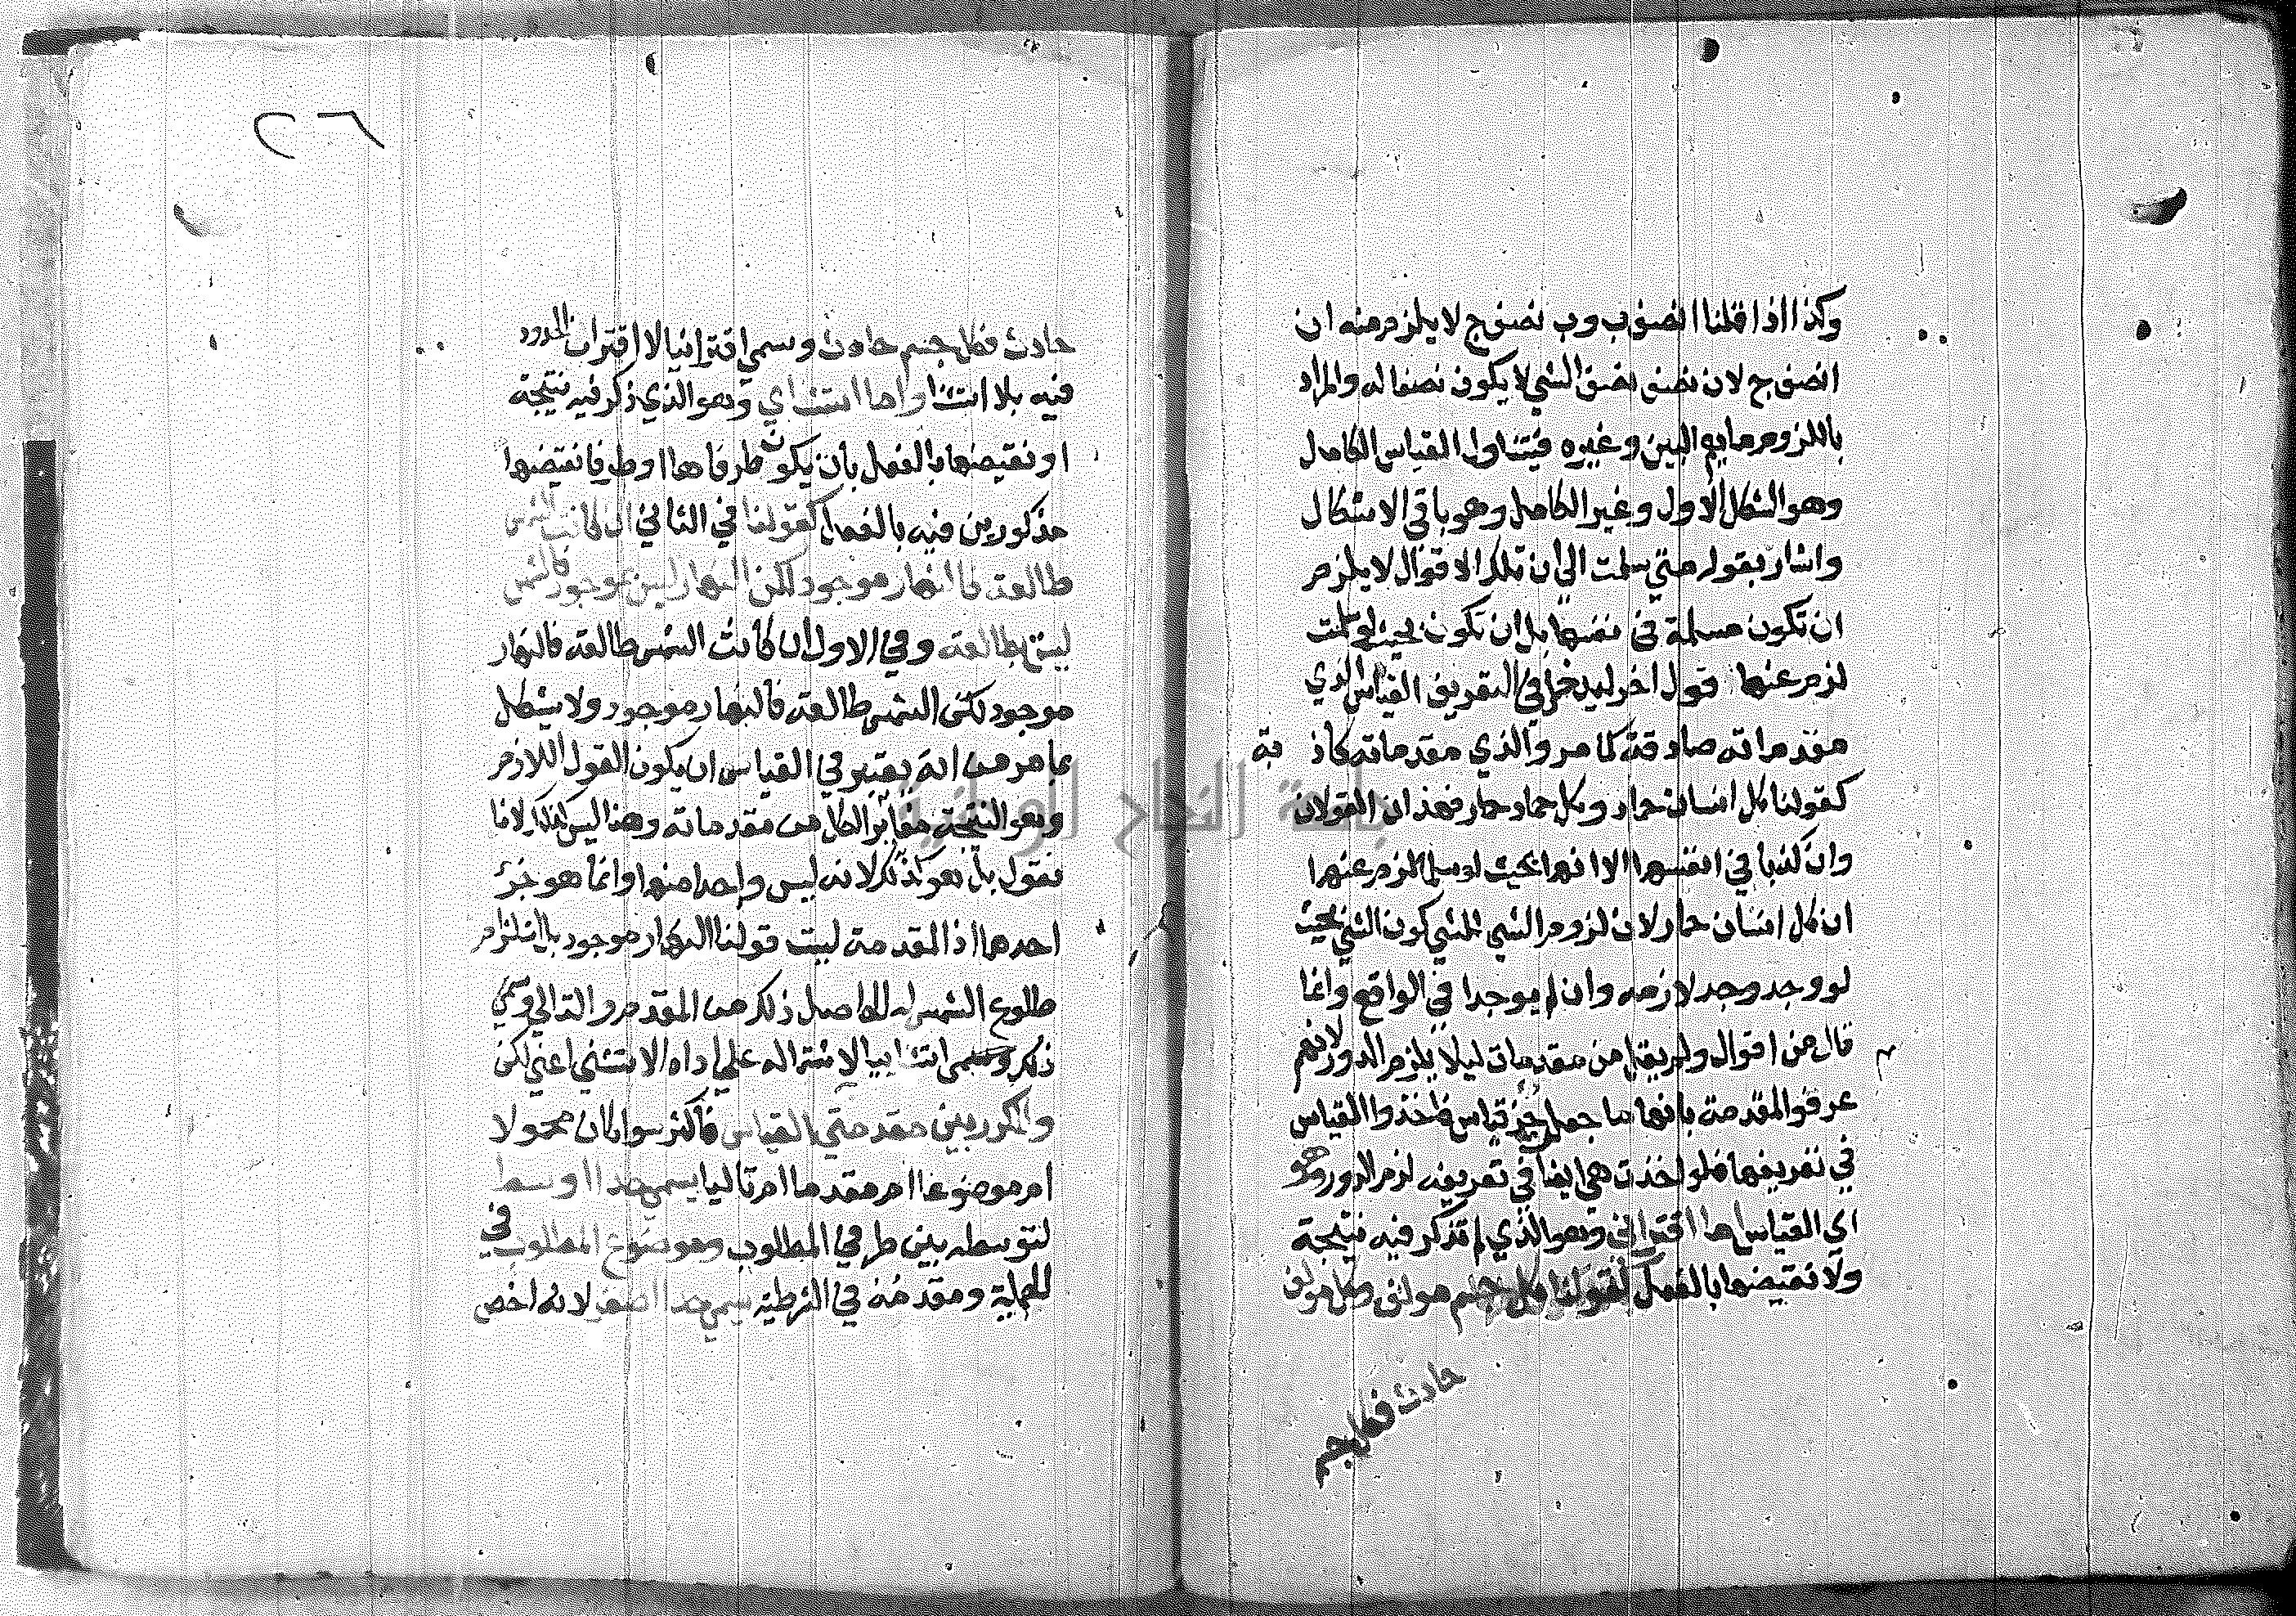 وكذا اذا قلنا ا نصف ب وب نصف ج لا يلزم منه ان
ا نصف ج لان نصف نصف الشي لا يكون نصفا له والمراد
باللزوم ما يعم البين وغيره فيتناول القياس الكامل
وهو الشكل الاول وغير الكامل وهو باقي الاشكال
واشار بقوله متي سلمت الي ان تلك الاقوال لا يلزم
ان تكون مسلمة في نفسها بل ان تكون بحيث لو سلمت
لزم عنها قول اخر ليدخل في التعريف القياس الذي
مقدماته صادقة كما مر والذي مقدماته كاذ بة
كقولنا كل انسان حمار وكل حمار فهذان القولان
وان كذبا في انفسهما الا انهما بحيث لو سلما لزم عنهما
ان كل انسان حمار لان لزوم الشي للشي كون الشي بحيث
لو وجد وجد لازمه وان لم يوجدا في الواقع وانما
قال من اقوال ولم يقل من مقدمات ليلا يلزم الدور لانهم
عرفوا المقدمة بانها ما جعل جز قياس فاخذوا القياس
في تعريفها فلو اخذت هي ايضا في تعريفه لزم الدور وهو
اي القياس اما اقتراني وهو الذي لم تذكر فيه نتيجة
ولا نقيضها بالفعل كقولنا كل جسم مولف وكل مولف
حادث فكل جسم
٢٦
حادث فكل جسم حادث وسمي اقترانيا لاقتران الحدود
فيه بلا استثنا واما استثناي وهو الذي ذكر فيه نتيجة
او نقيضها بالفعل بان يكون طرفاها او طرفا نقيضها
مذكورين فيه بالفعل كقولنا في الثاني ان كانت الشمس
طالعة فالنهار موجود لكن النهار ليس بموجود فالشمس
ليست بطالعة وفي الاول ان كانت الشمس طالعة فالنهار
موجود لكن الشمس طالعة فالنهار موجود ولا يشكل
بما مر من انه يعتبر في القياس ان يكون القول اللازم
وهو النتيجة مغايرا لكل من مقدماته وهذا ليس كذلك لانا
نقول بل هو كذلك لانه ليس واحدا منها وانما هو جزء
احدهما اذ المقدمة ليست قولنا النهار موجود بل استلزام
طلوع الشمس له الحاصل ذلك من المقدم والتالي وسمي
ذلك وسمي استثناييا لاشتماله علي اداة الاستثني اعني لكن
والمكرر بين مقدمتي القياس فاكثر سوا كان محمولا
ام موضوعا ام مقدما ام تاليا يسمي حدا اوسط
لتوسطه بين طرفي المطلوب وموضوع المطلوب في
الحملية ومقدمه في الشرطية يسمي حدا اصغر لانه اخص
جامعة النجاح الوطنية